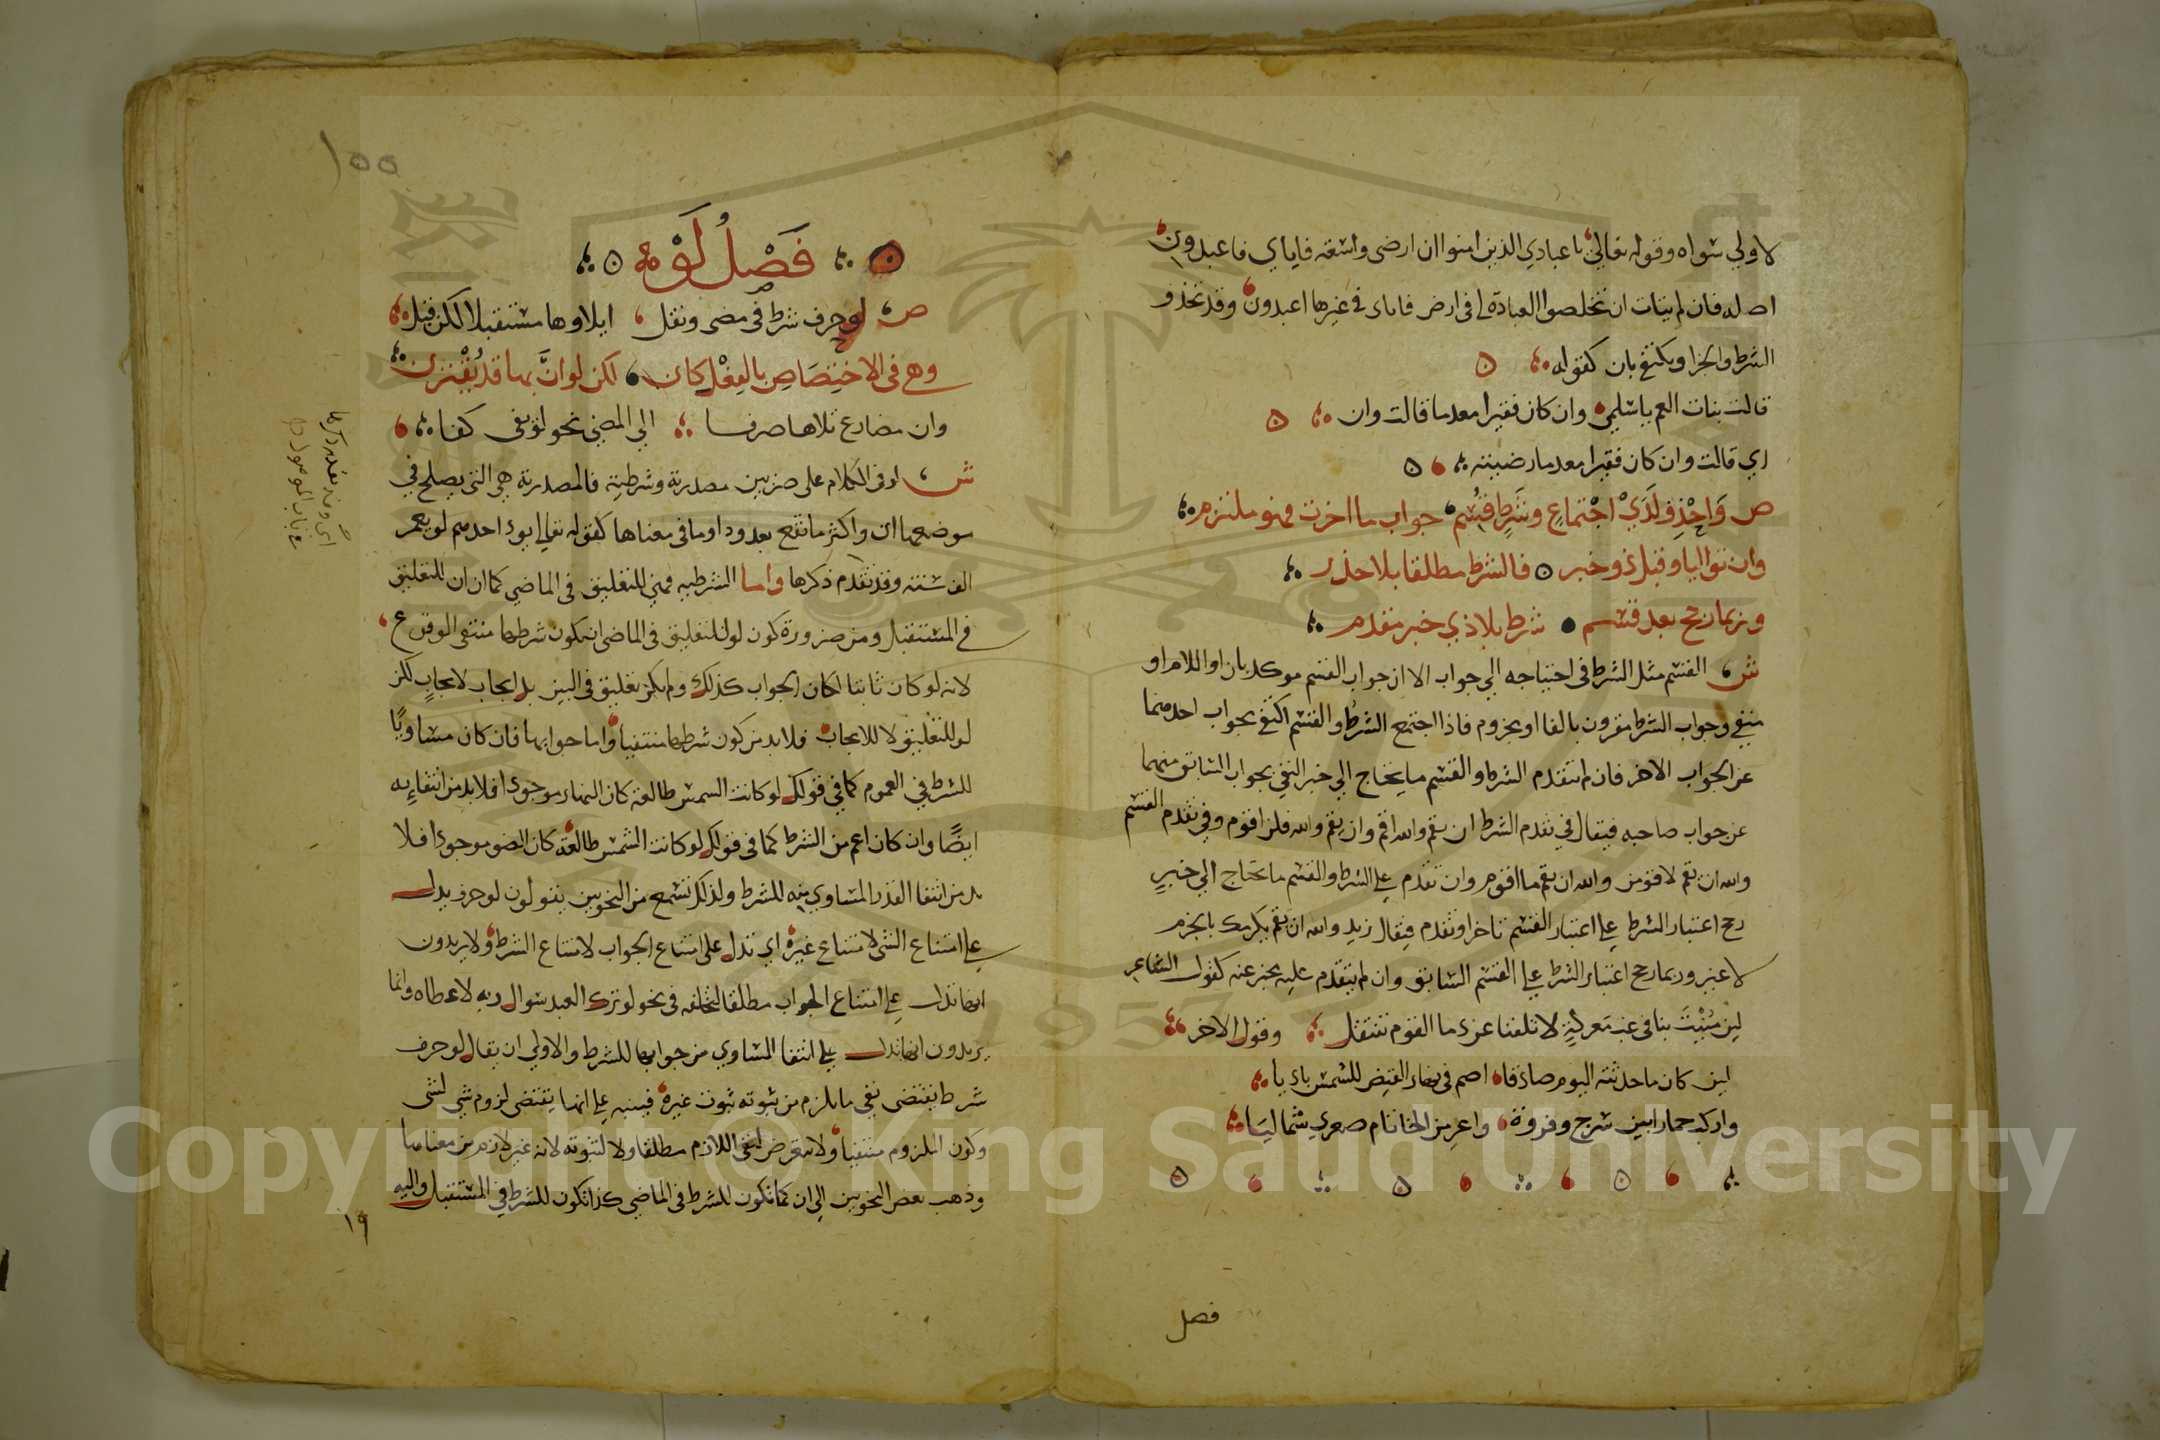 لاولي سواه وقوله تعالي يا عبادي الذين امنوا ان ارضي واسعة فاياي فاعبدون
اصله فان لم يتات ان تخلصوا العبادة لي في ارض فاياي في غيرها اعبدون وقد تحذف
الشرط والجزا ويكتفي بان كقوله
قالت بنات العم يا سلمي وان كان فقيرا معدما قالت وان
اي قالت وان كان فقيرا معدما رضيته
ص وَاحْذِف لَدَيْ اجْتماعِ وشَرطٍ قَسَم جواب ما اخرت فهو ملتزم
وان تواليا وقبل ذو خبر فالشرط مطلقا بلا حذر
وربما رجح بعد قسم شرط بلا ذي خبر مقدم
ش القسم مثل الشرط في احتياجه الي جواب الا ان جواب القسم موكد بان او اللام او
منفي وجواب الشرط مقرون بالفا او مجزوم فاذا اجتمع الشرط والقسم اكتفي بجواب احدهما
عن الجواب الاخر فان لم يتقدم الشرط والقسم ما يحتاج الي خبر اكتفي بجواب السابق منهما
عن جواب صاحبه فيقال في تقدم الشرط ان يقم والله اقم وان يقم والله فلن اقوم وفي تقدم القسم
والله ان تقم لاقومن والله ان يقم ما اقوم وان تقدم علي الشرط والقسم ما يحتاج الي خبر
رجح اعتبار الشرط علي اعتبار القسم تاخر او تقدم فيقال زيد والله ان يقم يكرمك بالجزم
لا غير وربما رجح اعتبار الشرط علي القسم السابق وان لم يتقدم عليه مخبر عنه كقول الشاعر
لين مُنِيْتَ بنا في غب مَعركةٍ لا تلفنا عن دما القوم ننتفل وقول الاخر
لين كان ما حدثته اليوم صادقا اصم في نهار القيض للشمس باديا
واركب حمارا بين سرج وفروة واعر من الخاتام صغري شماليا
فصل
١٥٥
فَصْلُ لَوْ
ص لو حرف شرط في مضي ويقل ايلاوها مستقبلا لكن قبل
وهي في الاختِصَاصِ بالفِعْلِ كان لكن لو انَّ بها قد تُقْترن
وان مضارع تلاها صرفا الي المضي نحو لو يفي كفا
ش لو في الكلام علي ضربين مصدرية وشرطية فالمصدرية هي التي يصلح في
موضعها ان واكثر ما تقع بعد ود او ما في معناها كقوله تعالي يود احدهم لو يعمر
الف سنة وقد تقدم ذكرها واما الشرطيه فهي للتعليق في الماضي كما ان ان للتعليق
في المستقبل ومن ضرورة كون لو للتعليق في الماضي ان يكون شرطها منتفي الوقوع
لانه لو كان ثابتا لكان الجواب كذلك ولم يكن تعليق في البين بل ايجاب لايجاب لكن
لو للتعليق لا للايجاب فلا بد من كون شرطها منتفيا واما جوابها فان كان مساويا
للشرط في العموم كما في قولك لو كانت الشمس طالعة كان النهار موجودا فلا بد من انتفايه
ايضًا وان كان اعم من الشرط كما في قولك لو كانت الشمس طالعة كان الضو موجودا فلا
بد من انتفا القدر المساوي منه للشرط ولذلك تسمع من النحويين يقولون لو حرف يدل
علي امتناع الشي لامتناع غيره اي تدل علي امتناع الجواب لامتناع الشرط ولا يريدون
انها تدل علي امتناع الجواب مطلقا لتخلفه في نحو لو ترك العبد سوال ربه لاعطاه وانما
يريدون انها تدل علي انتفا المساوي من جوابها للشرط والاولي ان يقال لو حرف
شرط يقتضي نفي ما يلزم من ثبوته ثبوت غيره فينبه علي انها يقتضي لزوم شي لشي
وكون الملزوم منتفيا ولا يتعرض لنفي اللازم مطلقا ولا لثبوته لانه غير لازم من معناها
وذهب بعض النحويين الي ان كما تكون للشرط في الماضي كذا تكون للشرط في المستقبل واليه
١٩